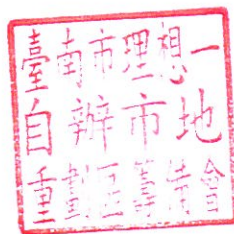 臺南市理想一
自辦市地
重劃區籌備會